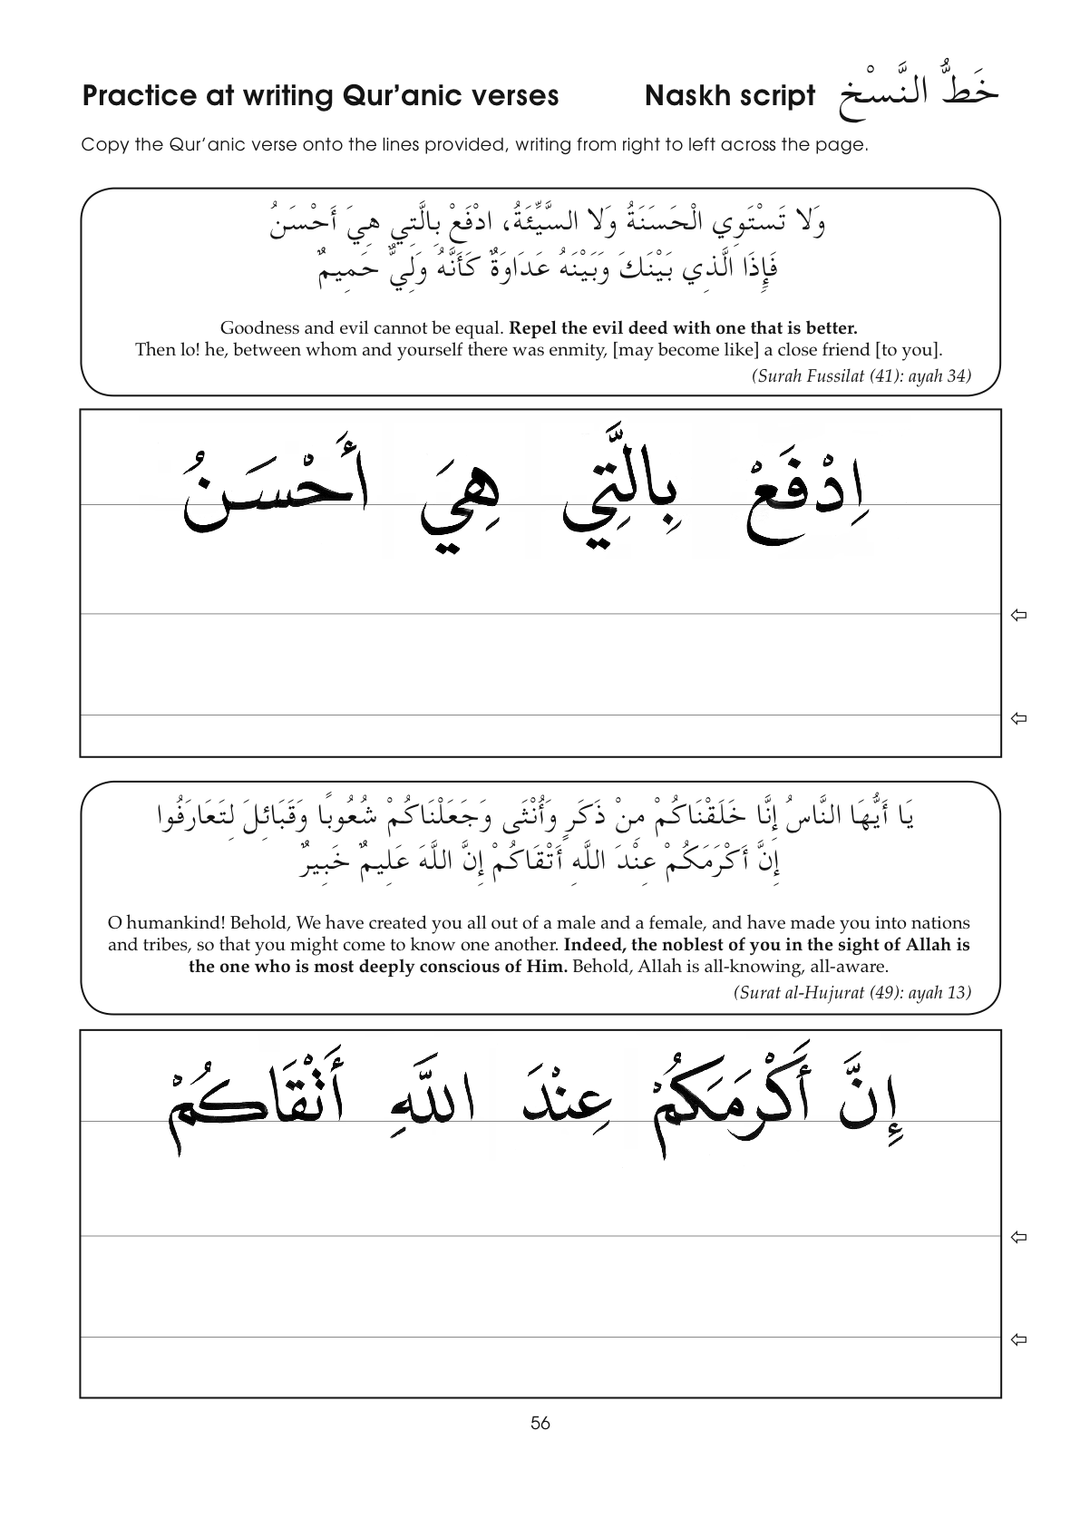 Practice at writing Qur’anic verses Naskh script خَطُّ النَّسْخ
Copy the Qur’anic verse onto the lines provided, writing from right to left across the page.
وَلا تَسْتَوِي الْحَسَنَةُ وَلا السَّيِّئَةُ، ادْفَعْ بِالَّتِي هِيَ أَحْسَنُ
فَإِذَا الَّذِي بَيْنَكَ وَبَيْنَهُ عَدَاوَةٌ كَأَنَّهُ وَلِيٌّ حَمِيمٌ
Goodness and evil cannot be equal. Repel the evil deed with one that is better.
Then lo! he, between whom and yourself there was enmity, [may become like] a close friend [to you].
(Surah Fussilat (41): ayah 34)
اِدْفَعْ بِالَّتِي هِيَ أَحْسَنُ
يَا أَيُّهَا النَّاسُ إِنَّا خَلَقْنَاكُمْ مِنْ ذَكَرٍ وَأُنْثَى وَجَعَلْنَاكُمْ شُعُوبًا وَقَبَائِلَ لِتَعَارَفُوا
إِنَّ أَكْرَمَكُمْ عِنْدَ اللَّهِ أَتْقَاكُمْ إِنَّ اللَّهَ عَلِيمٌ خَبِيرٌ
O humankind! Behold, We have created you all out of a male and a female, and have made you into nations
and tribes, so that you might come to know one another. Indeed, the noblest of you in the sight of Allah is
the one who is most deeply conscious of Him. Behold, Allah is all-knowing, all-aware.
(Surat al-Hujurat (49): ayah 13)
إِنَّ أَكْرَمَكُمْ عِنْدَ اللَّهِ أَتْقَاكُمْ
56